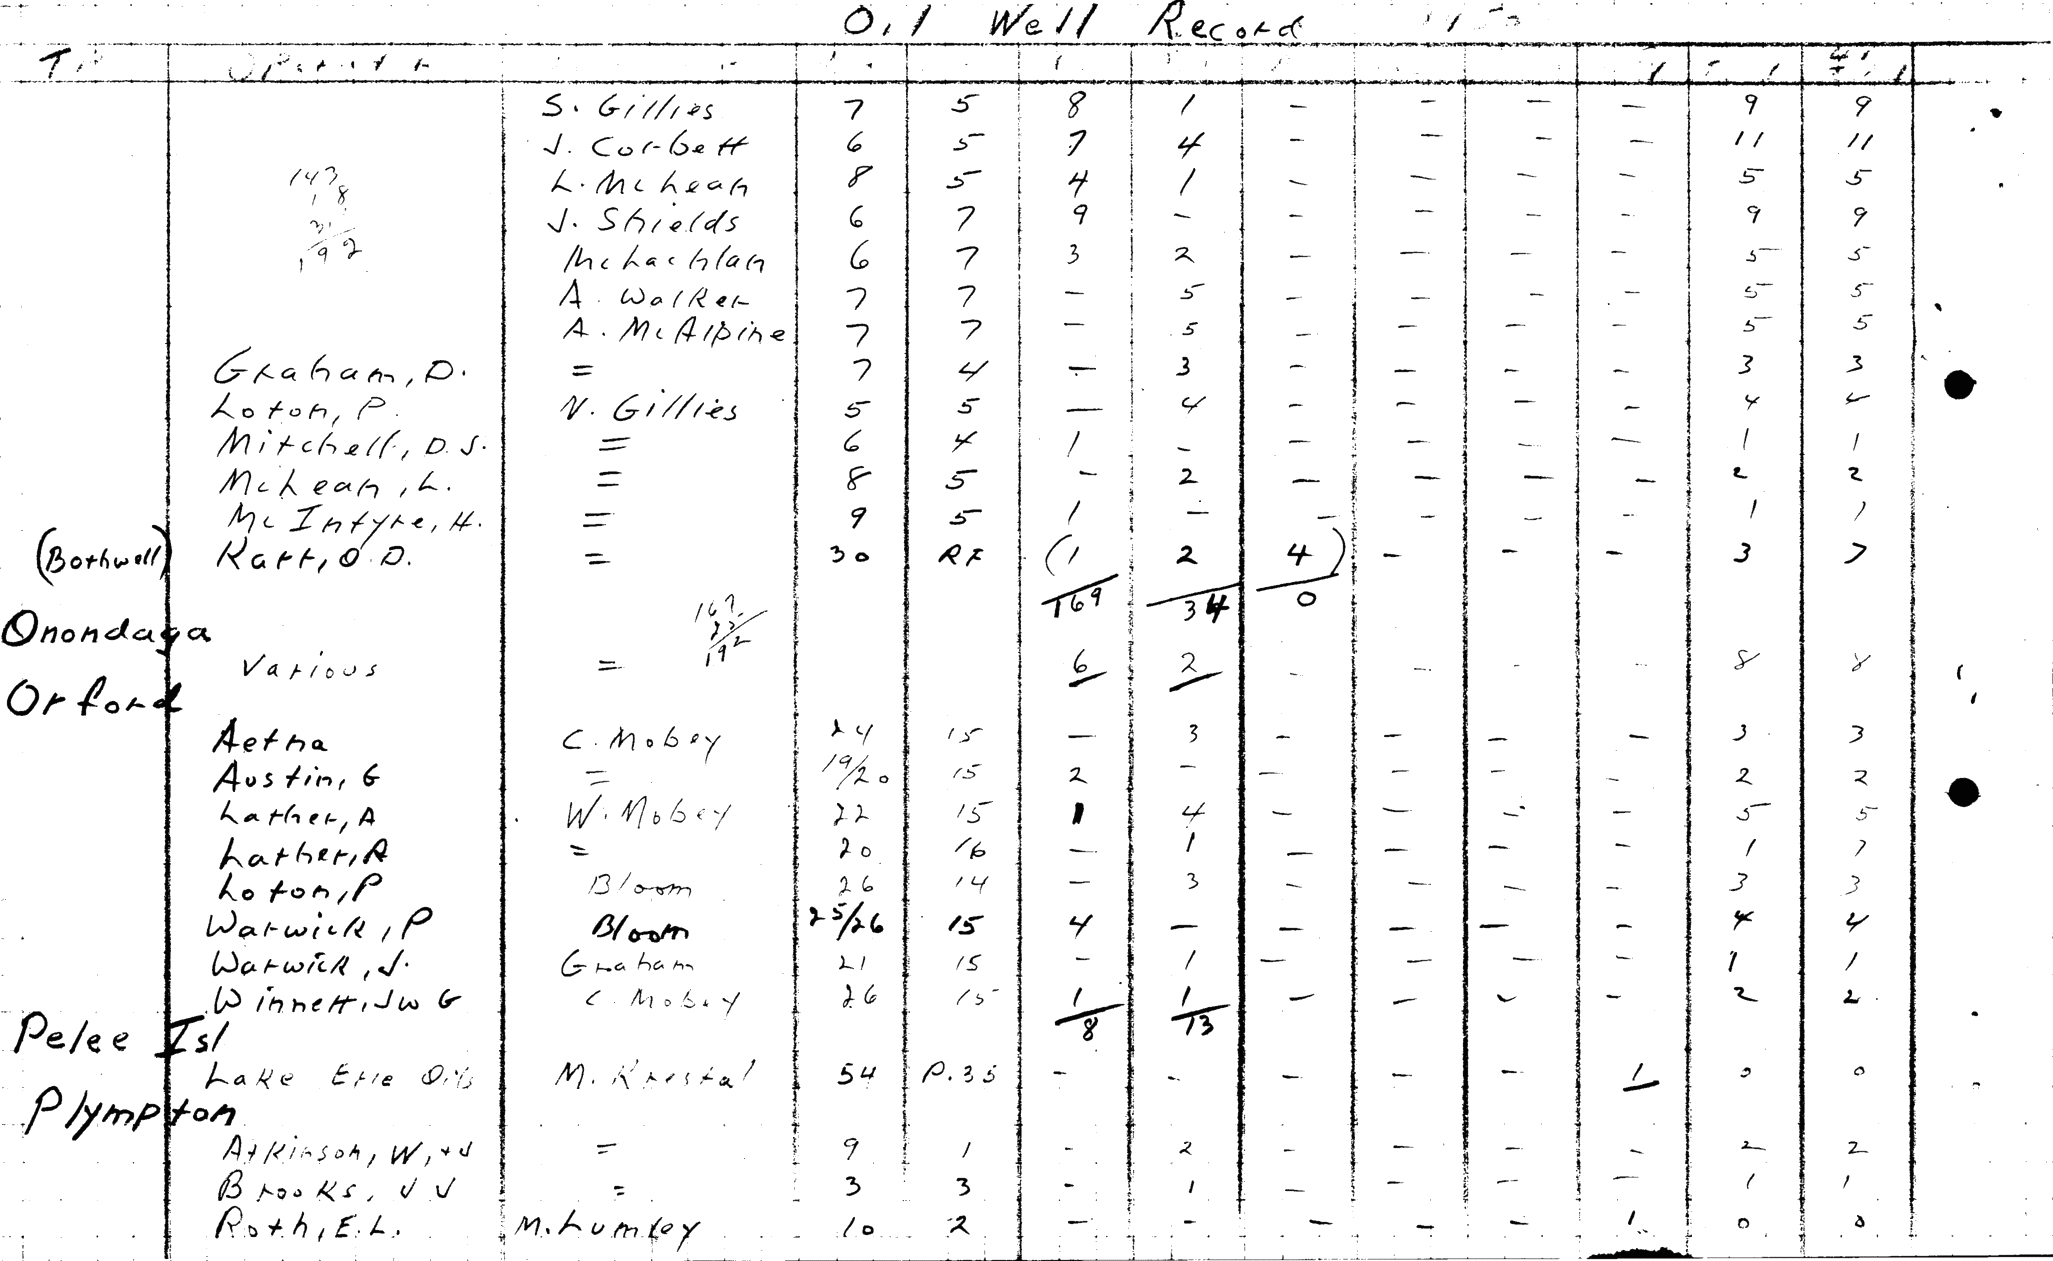 Oil Well Record
S. Gillies 7 5 8 1 - - - - 9 9
J. Corbett 6 5 7 4 - - - - 11 11
L. McLean 8 5 4 1 - - - - 5 5
J. Shields 6 7 9 - - - - - 9 9
McLachlan 6 7 3 2 - - - - 5 5
A. Walker 7 7 - 5 - - - - 5 5
A. McAlpine 7 7 - 5 - - - - 5 5
Graham, D. = 7 4 - 3 - - - - 3 3
Loton, P. N. Gillies 5 5 - 4 - - - - 4 4
Mitchell, D.J. = 6 4 1 - - - - - 1 1
McLean, L. = 8 5 - 2 - - - - 2 2
McIntyre, H. = 9 5 1 - - - - - 1 1
(Bothwell) Karr, O.D. = 30 RF (1 2 4) - - - 3 7
169 34 0
Onondaga
Various = 6 2 - - - - 8 8
Orford
Aetna C. Mobey 24 15 - 3 - - - - 3 3
Austin, G = 19/20 15 2 - - - - - 2 2
Lather, A W. Mobey 22 15 1 4 - - - - 5 5
Lather, A = 20 16 - 1 - - - - 1 1
Loton, P Bloom 26 14 - 3 - - - - 3 3
Warwick, P Bloom 25/26 15 4 - - - - - 4 4
Warwick, J. Graham 21 15 - 1 - - - - 1 1
Winnett, JWG C. Mobey 26 15 1 1 - - - - 2 2
8 13
Pelee Isl
Lake Erie Oils M. Krestal 54 P.35 - - - - - 1 0 0
Plympton
Atkinson, W, +J = 9 1 - 2 - - - - 2 2
Brooks, JJ = 3 3 - 1 - - - - 1 1
Roth, E.L. M. Lumley 10 2 - - - - - 1 0 0